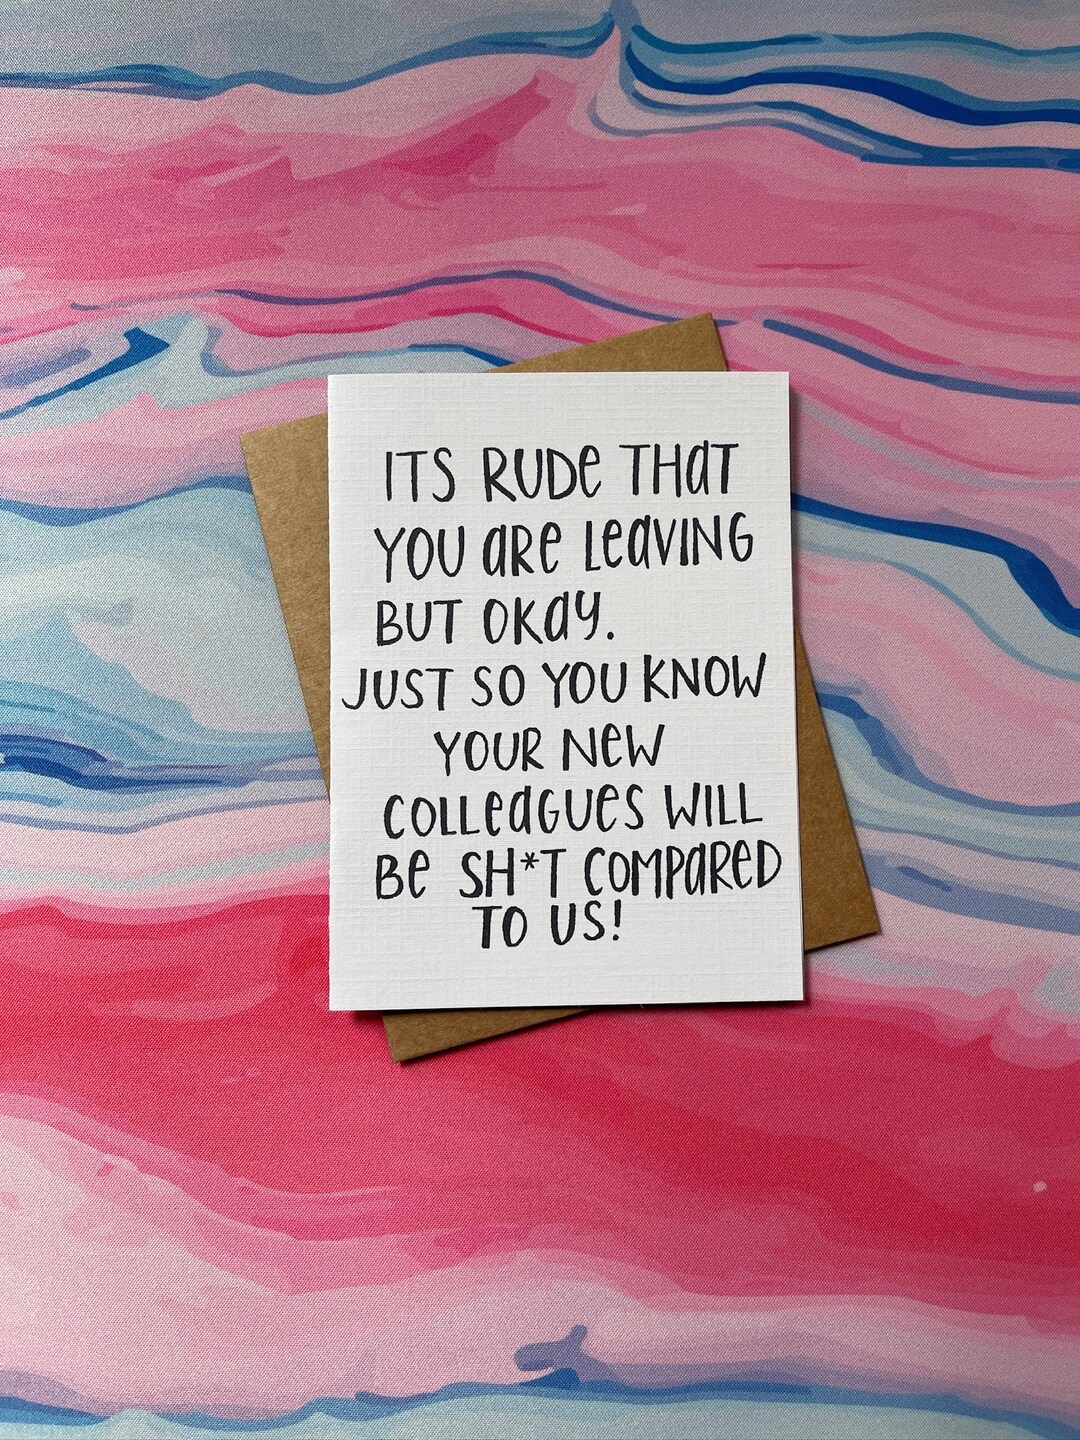 ITS RUDe THaT
YOU aRe LeaVING
BUT OKay.
JUST SO YOU KNOW
YOUR NeW
COLLeaGUeS WILL
Be SH*T COMPaReD
TO US!